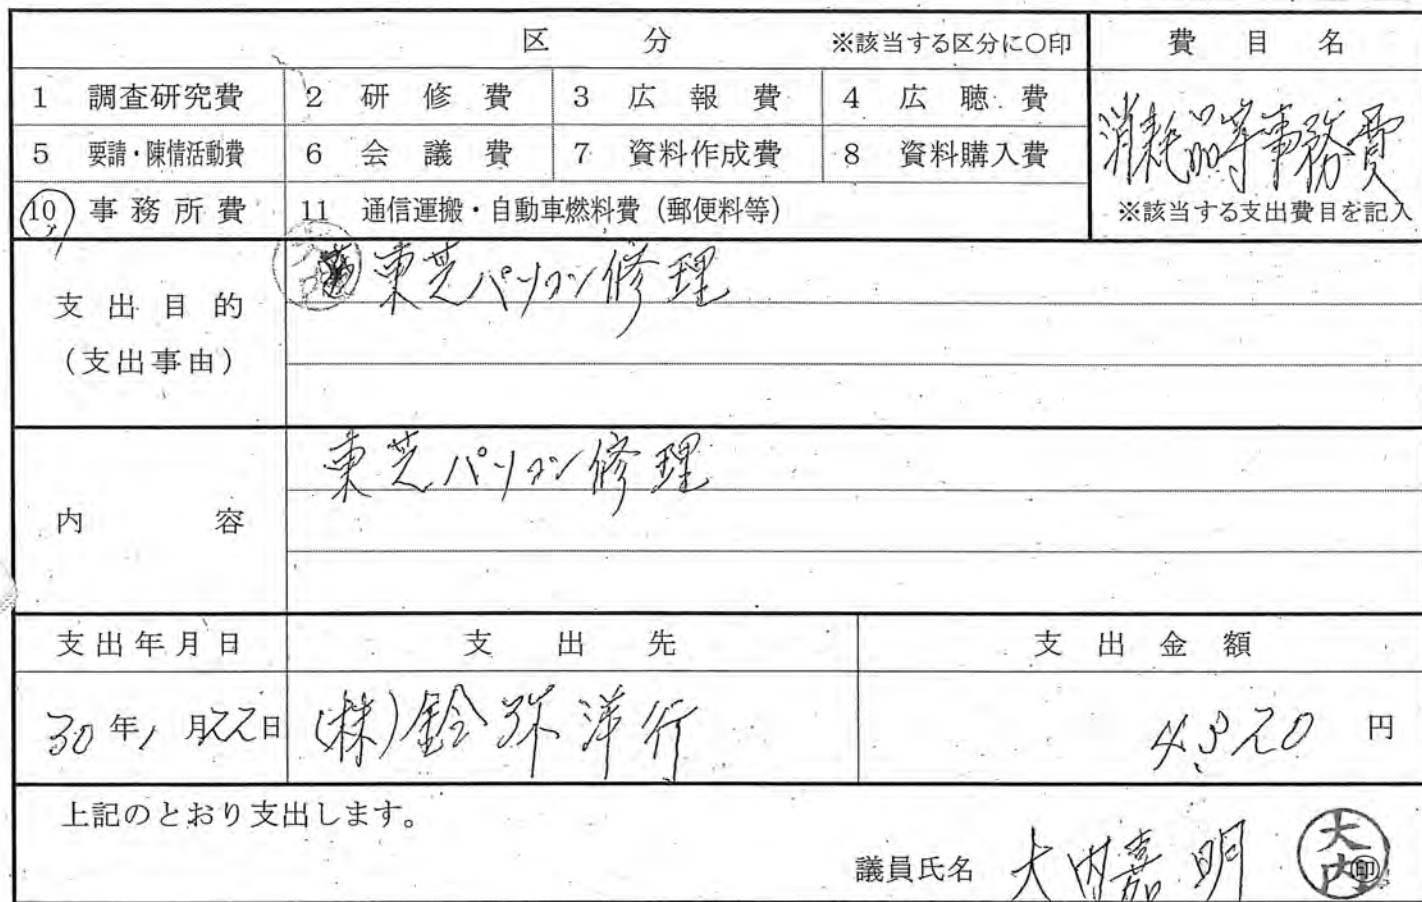 区 分 ※該当する区分に○印 費目名
1 調査研究費 2 研修費 3 広報費 4 広聴費
消耗品等事務費
5 要請・陳情活動費 6 会議費 7 資料作成費 8 資料購入費
10 事務所費 11 通信運搬・自動車燃料費(郵便料等) ※該当する支出費目を記入
支出目的
(支出事由)
東芝パソコン修理
内容
東芝パソコン修理
支出年月日 支出先 支出金額
30年1月22日 (株)鈴弥洋行 4,320円
上記のとおり支出します。
議員氏名 大内嘉明 大内 印